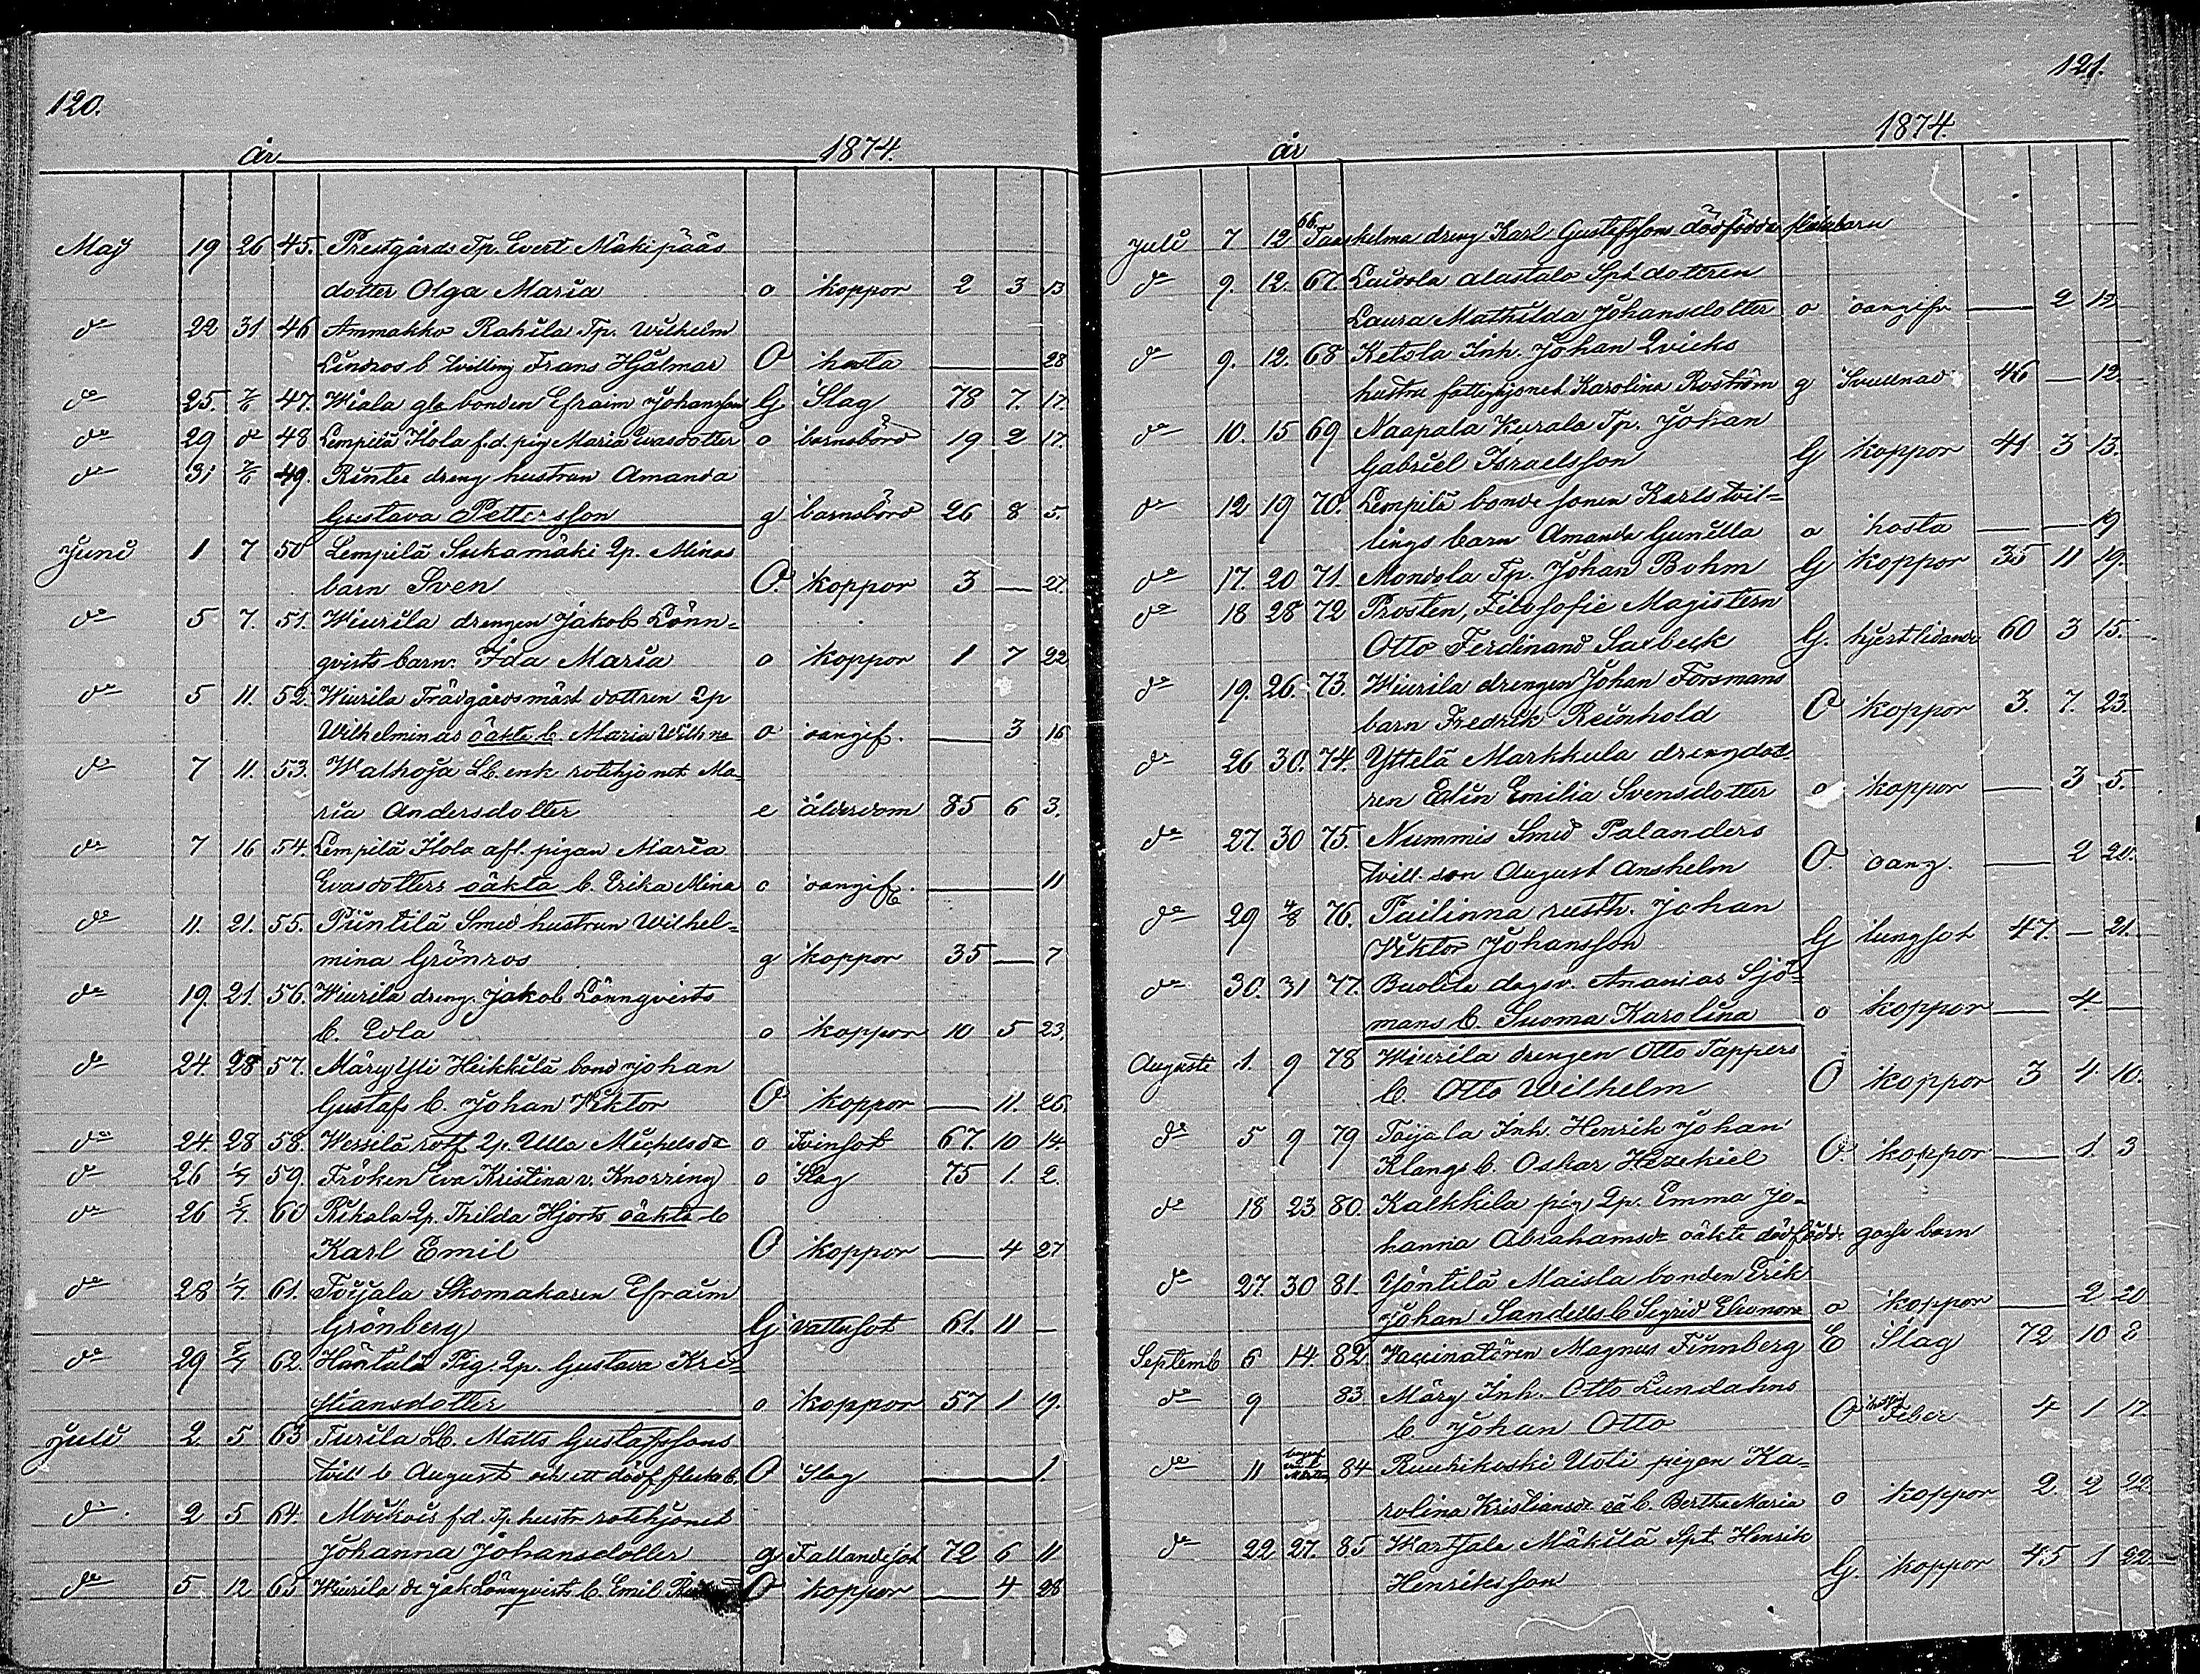 120.
år 1874.
May 19 26 45. Prestgårds Tp. Evert Mäkipääs
dotter Olga Maria o koppor 2 3 13
do 22 31 46 Ammakko Rahila Tp. Wilhelm
Lindros b. tvilling Frans Hjalmar O hosta — — 28
do 25. 7/6 47. Wiala gla bonden Efraim Johansson G Slag 78 7. 17.
do 29 do 48 Lempilä Ilola f.d. pig Maria Evasdotter o barnsbörd 19 2 17.
do 31 7/6 49. Rintee dreng hustrun Amanda
Gustava Pettersson g barnsbörd 26 8 5.
Juni 1 7 50 Lempilä Sukamäki Qp. Minas
barn Sven O. koppor 3 — 27.
do 5 7. 51. Wiurila drengen Jakob Lönn=
qvists barn. Ida Maria o koppor 1 7 22
do 5 11. 52. Wiurila Trädgårdsmäst dottren Qp
Wilhelminas oäkta b. Maria Wilhna o oangif. — 3 16
do 7 11. 53. Walhoja LB. enk. rotehjonet Ma-
ria Andersdotter e ålderdom 85 6 3.
do 7 16 54. Lempilä Ilola afl. pigan Maria
Evasdotters oäkta b. Erika Mina o oangif. — — 11
do 11. 21. 55. Piintilä Smed hustrun Wilhel=
mina Grönros g koppor 35 — 7
do 19. 21. 56. Wiurila dreng. Jakob Lönnqvists
b. Evla o koppor 10 5 23.
do 24. 28 57. Märy Yli Heikkilä bond Johan
Gustafs b. Johan Viktor O koppor — 11. 26.
do 24. 28 58. Wesselä rotf. Qp. Ulla Michelsdr o Tvinsot 67. 10 14.
do 26 1/7 59. Fröken Eva Kristina v. Knorring o Slag 75 1. 2.
do 26 5/7. 60 Rikala Qp. Thilda Hjorts oäkta b
Karl Emil O koppor — 4 27
do 28 1/7. 61. Toijala Skomakaren Efraim
Grönberg G vattusot 61. 11 —
do 29 5/7 62. Häntälä Pig. Qp. Gustava Kri=
stiansdotter o koppor 57 1 19.
Juli 2. 5 63 Turila LB. Matts Gustafssons
tvill b August och ett dödf. flickab. O Slag — — 1
do 2 5 64. Moikois f.d. Tp. hustr rotehjonet
Johanna Johansdotter g Fallandesot 72 6 11
do 5. 12 65 Wiurila dr Jak Lönnqvists b. Emil O koppor — 4 28
121.
år 1874.
Juli 7 12 66 Taaskelma dreng Karl Gustafssons dödfödda flickebarn
do 9. 12. 67. Laurola alastalo Spt dottren
Laura Mathilda Johansdotter o oangifv — 2 12
do 9. 12. 68 Ketola Inh. Johan Qvicks
hustru fattighjonet Karolina Roström g Svullnad 46 — 12.
do 10. 15 69 Naapala Kurala Tp. Johan
Gabriel Israelsson G koppor 41 3 13.
do 12 19 70. Lempilä bonde sonen Karls tvil=
lings barn Amanda Gunilla o hosta — — 19
do 17. 20 71. Mondola Tp. Johan Bohm G koppor 35 11 19.
do 18 28 72 Prosten, Filosofie Magistern
Otto Ferdinand Saxbeck G. hjertlidande 60 3 15.
do 19. 26. 73. Wiurila drengen Johan Forsmans
barn Fredrik Reinhold O koppor 3. 7. 23.
do 26 30. 74. Yttelä Markkula drengdott
ren Edla Emilia Svensdotter o koppor — 3 5.
do 27. 30 75. Nummis Smed Palanders
tvill. son August Anshelm O. oang. — 2 21.
do 29 4/8 76. Pailinna rusth. Johan
Viktor Johansson G lungsot 47. — 21.
do 30. 31 77. Buolite dagsv. Ananias Sjö=
mans b. Suoma Karolina o koppor — 4. —
Augusti 1. 9 78 Wiurila drengen Otto Tappers
b. Otto Wilhelm O koppor 3 4 10.
do 5 9 79 Toijala Inh. Henrik Johan
Klangs b. Oskar Hizekiel O. koppor — 1. 3
do 18 23 80. Kalkkila pig Qp. Emma Jo-
hanna Abrahamsdr oäkta dödfödde gosse barn
do 27. 30 81. Yöntilä Maisla bonden Erik
Johan Sandells b Sigrid Eleonora o koppor — 2 20
Septemb 6 14 82 Vaccinatören Magnus Finnberg E Slag 72 10 8
do 9 83. Märy Inh. Otto Lundahns
b. Johan Otto O Feber 4 1 17.
do 11 84 Ruuhikoski Uoti pigan Ka=
rolina Kristiansdr oä b. Bertha Maria o koppor 2. 2 22.
do 22 27. 85 Wartsala Mäkilä Spt. Henrik
Henriksson G. koppor 45 1 22.